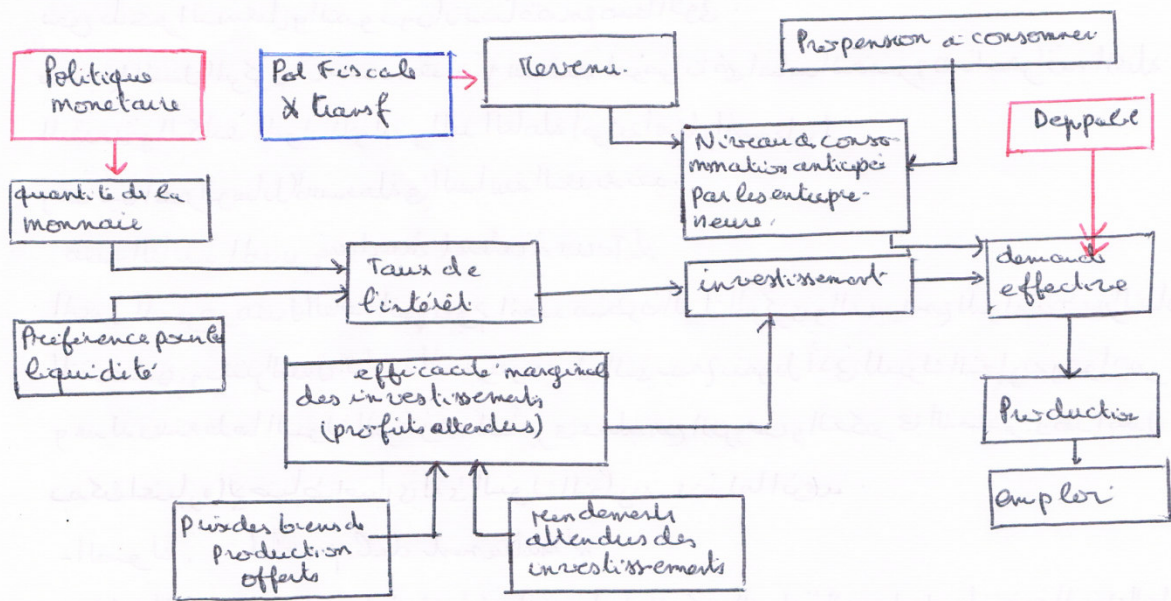 Politique
monetaire
Pol Fiscale
& transf
Revenu.
Propension a consommer
quantité de la
monnaie
Niveau de conso-
mmation anticipé
par les entrepre-
neurs.
Dep publ
Taux de
l'intérêt
investissement
demande
effective
Préférence pour la
liquidité
efficacite marginal
des investissements
(profits attendus)
Production
emploi
Prix des biens de
Production
offerts
rendements
attendus des
investissements